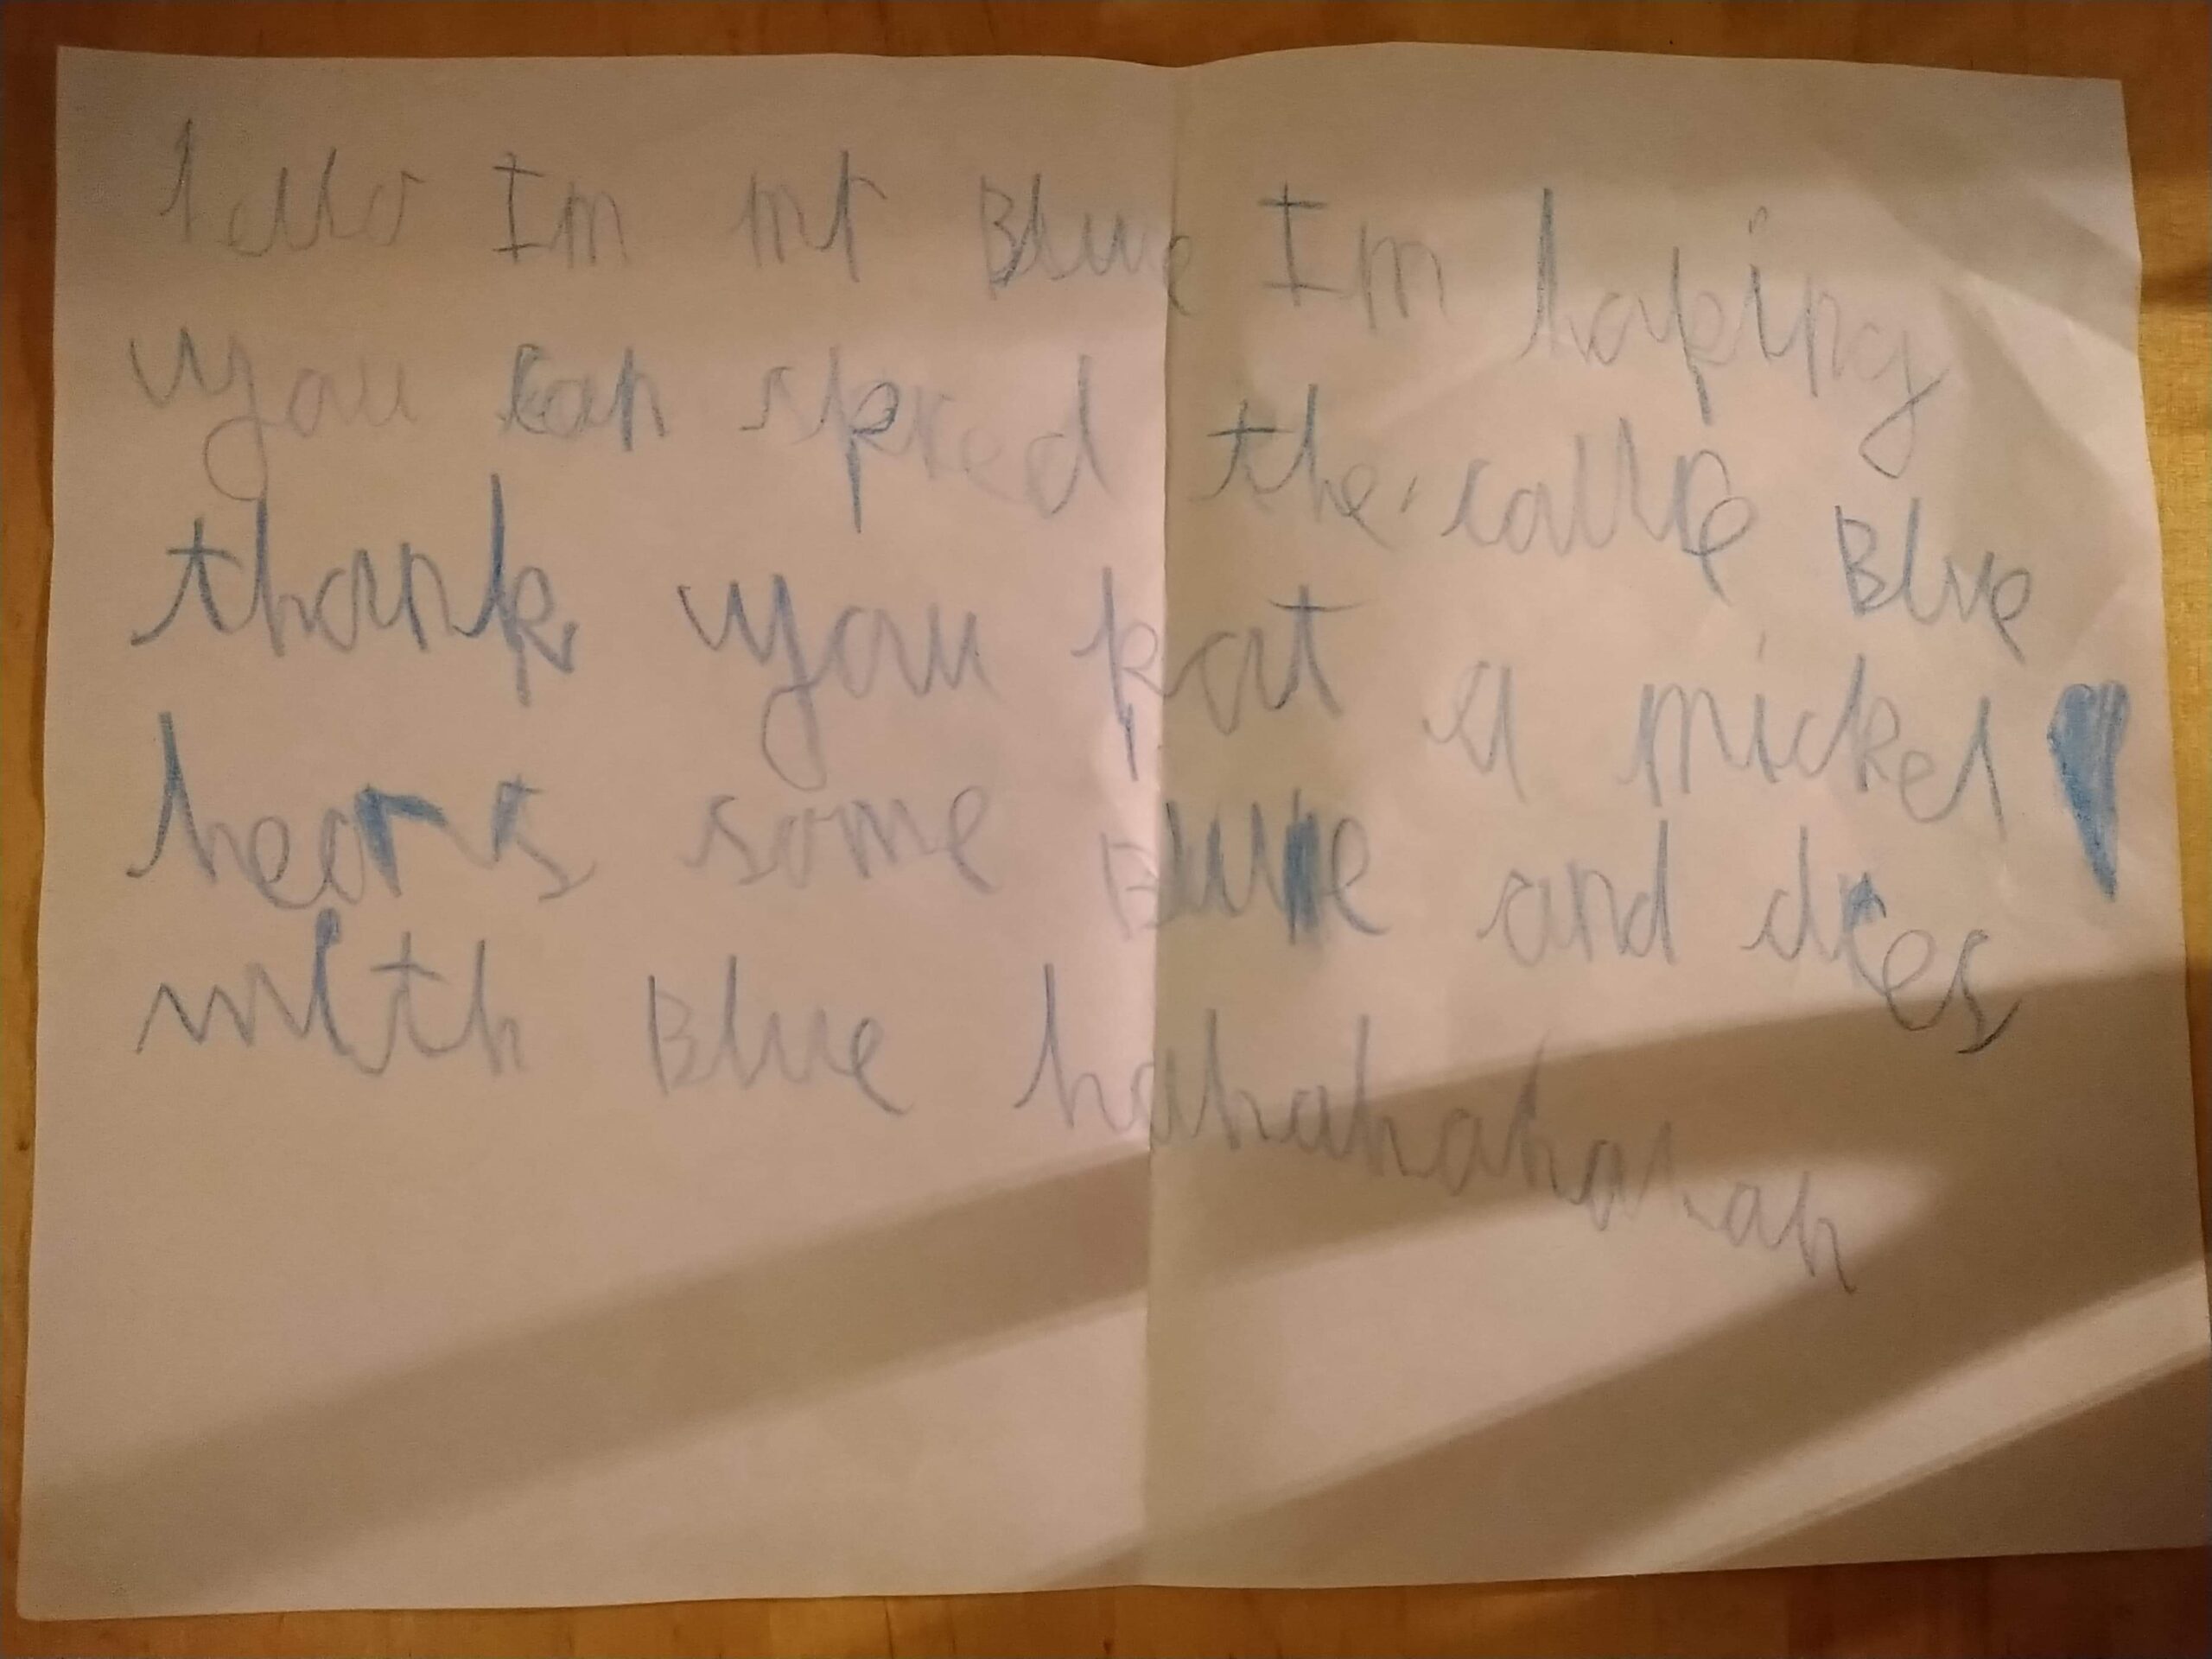 hello Im mr Blue Im hoping
you can spred the coulle Blue
thank you kat a mickel
hear s some Blue and dres
with Blue hahahahahahah